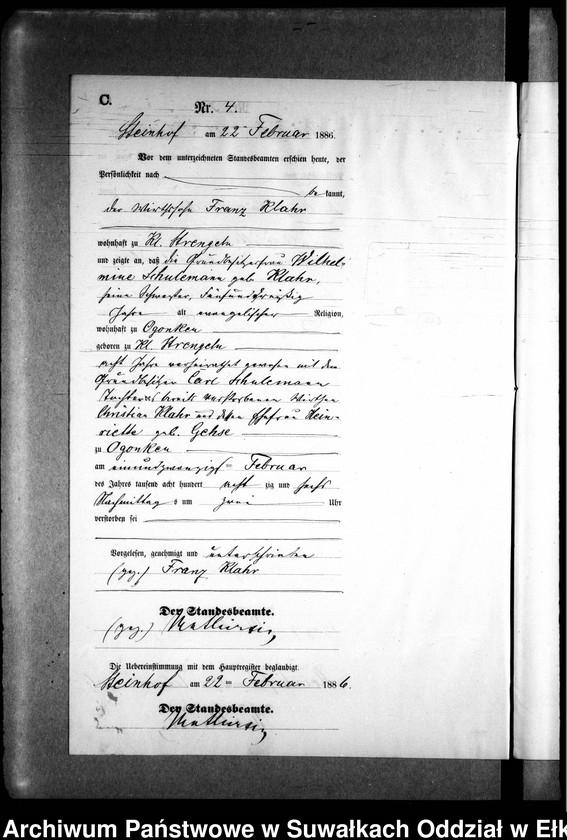 C.
Nr. 4.
Steinhof am 22 Februar 1886.
Vor dem unterzeichneten Standesbeamten erschien heute, der
Persönlichkeit nach
be kannt,
der Wirthssohn Franz Klahr
wohnhaft zu Kl. Strengeln
und zeigte an, daß die Grundbesitzerfrau Wilhel-
mine Schulemann geb. Klahr,
seine Schwester, fünfunddreißig
Jahre alt evangelischer Religion,
wohnhaft zu Ogonken
geboren zu Kl. Strengeln
acht Jahre verheirathet gewesen mit dem
Grundbesitzer Carl Schulemann
Tochter des bereits verstorbenen Wirthen
Christian Klahr und dessen Ehefrau Hein-
riette geb. Gehse
zu Ogonken
am einundzwanzigsten Februar
des Jahres tausend acht hundert acht zig und sechs
Nachmittag s um zwei Uhr
verstorben sei
Vorgelesen, genehmigt und unterschrieben
(gez.) Franz Klahr
Der Standesbeamte.
(gez.)
Die Uebereinstimmung mit dem Hauptregister beglaubigt.
Steinhof am 22 Februar 1886.
Der Standesbeamte.
Archiwum Państwowe w Suwałkach Oddział w Ełk